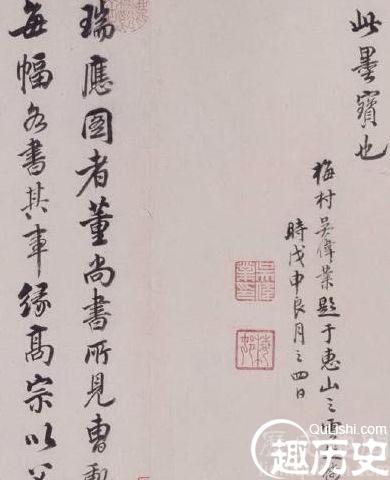 此墨寶也
梅村吳偉業題于惠山之
時戊申良月之四日
瑞應圖者董尚書所見曹
每幅各書其事緣高宗以
QuLishi.com
趣历史